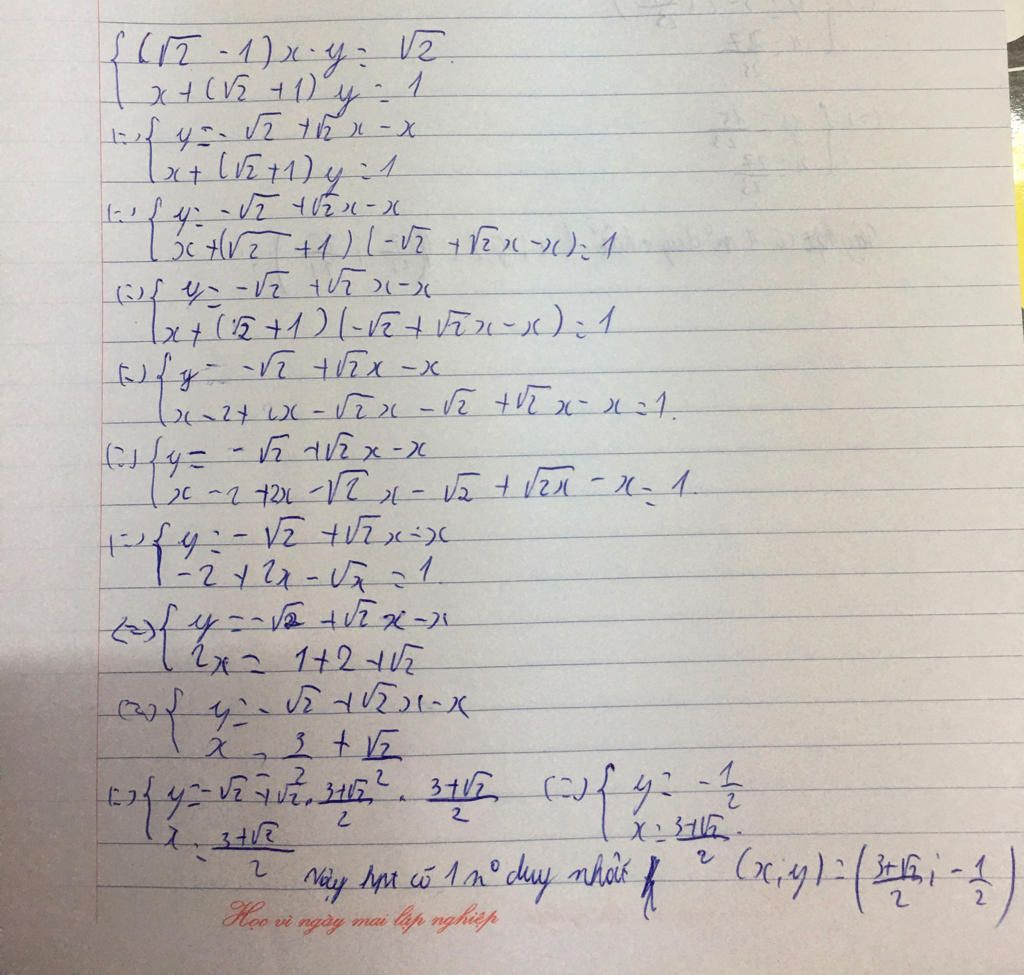 { (√2 - 1)x - y = √2
x + (√2 + 1) y = 1
(=) { y = - √2 + √2 x - x
x + (√2+1) y = 1
(=) { y = -√2 + √2 x - x
x + (√2 + 1) (-√2 + √2 x - x) = 1
(=) { y = -√2 + √2 x - x
x + (√2 + 1) (-√2 + √2 x - x) = 1
(=) { y = -√2 + √2 x - x
x - 2 + 2x - √2 x - √2 + √2 x - x = 1.
(=) { y = - √2 + √2 x - x
x - 2 + 2x - √2 x - √2 + √2x - x = 1.
(=) { y = - √2 + √2 x - x
-2 + 2x - √x = 1.
(=) { y = -√2 + √2 x - x
2x = 1 + 2 + √2
(=) { y = - √2 + √2 x - x
x = 3/2 + √2/2
(=) { y = -√2 + √2 . (3+√2)/2 - (3+√2)/2 (=) { y = - 1/2
x = (3+√2)/2 x = (3+√2)/2 .
Vậy hpt có 1 n° duy nhất (x; y) = ((3+√2)/2 ; - 1/2)
Học vì ngày mai lập nghiệp